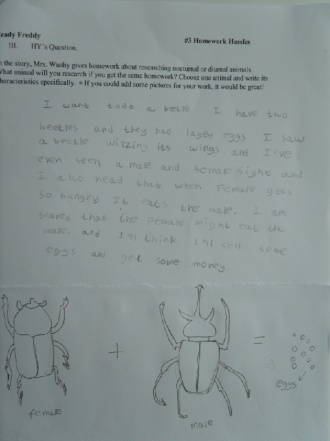 eady Freddy
#3 Homework Hassles
III. HY's Question.
n the story, Mrs. Wushy gives homework about researching nocturnal or diurnal animals
What animal will you research if you get the same homework? Choose one animal and write its
haracteristics specifically. * If you could add some pictures for your work, it would be great!
I want to do a beetle. I have two
beetles and they had layed eggs I saw
a beetle its wings and I've
even seen a male and female fight and
I also read that when female gets
so hungry It eats the male. I am
scared that the female might eat the
male. and I'll think I'll sell some
eggs and get some money.
+
=
eggs
female
male